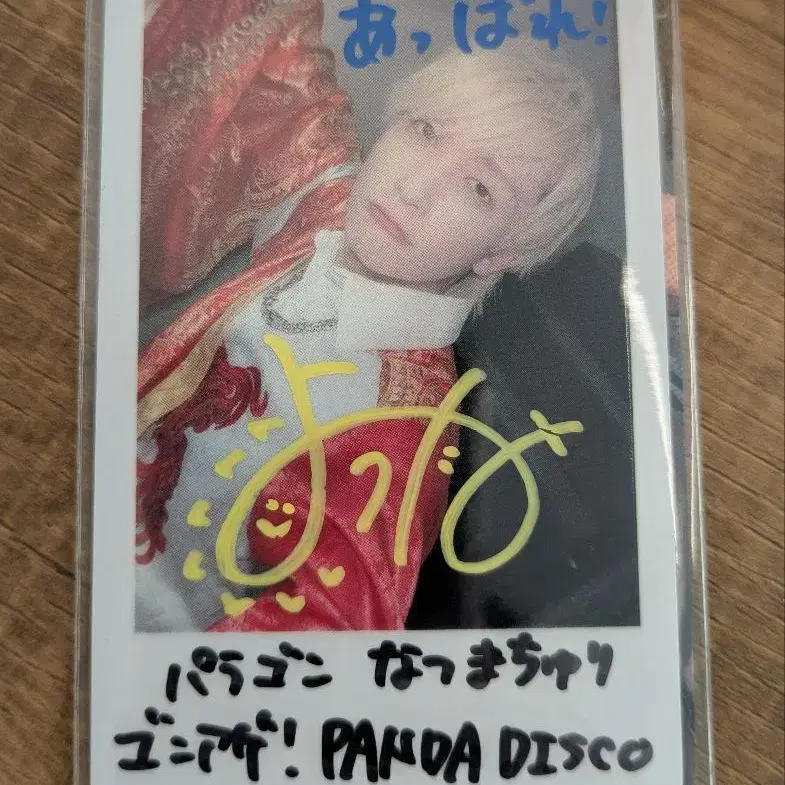 あっぱれ!
パラゴン なつまちゅり
ゴンアゲ! PANDA DISCO